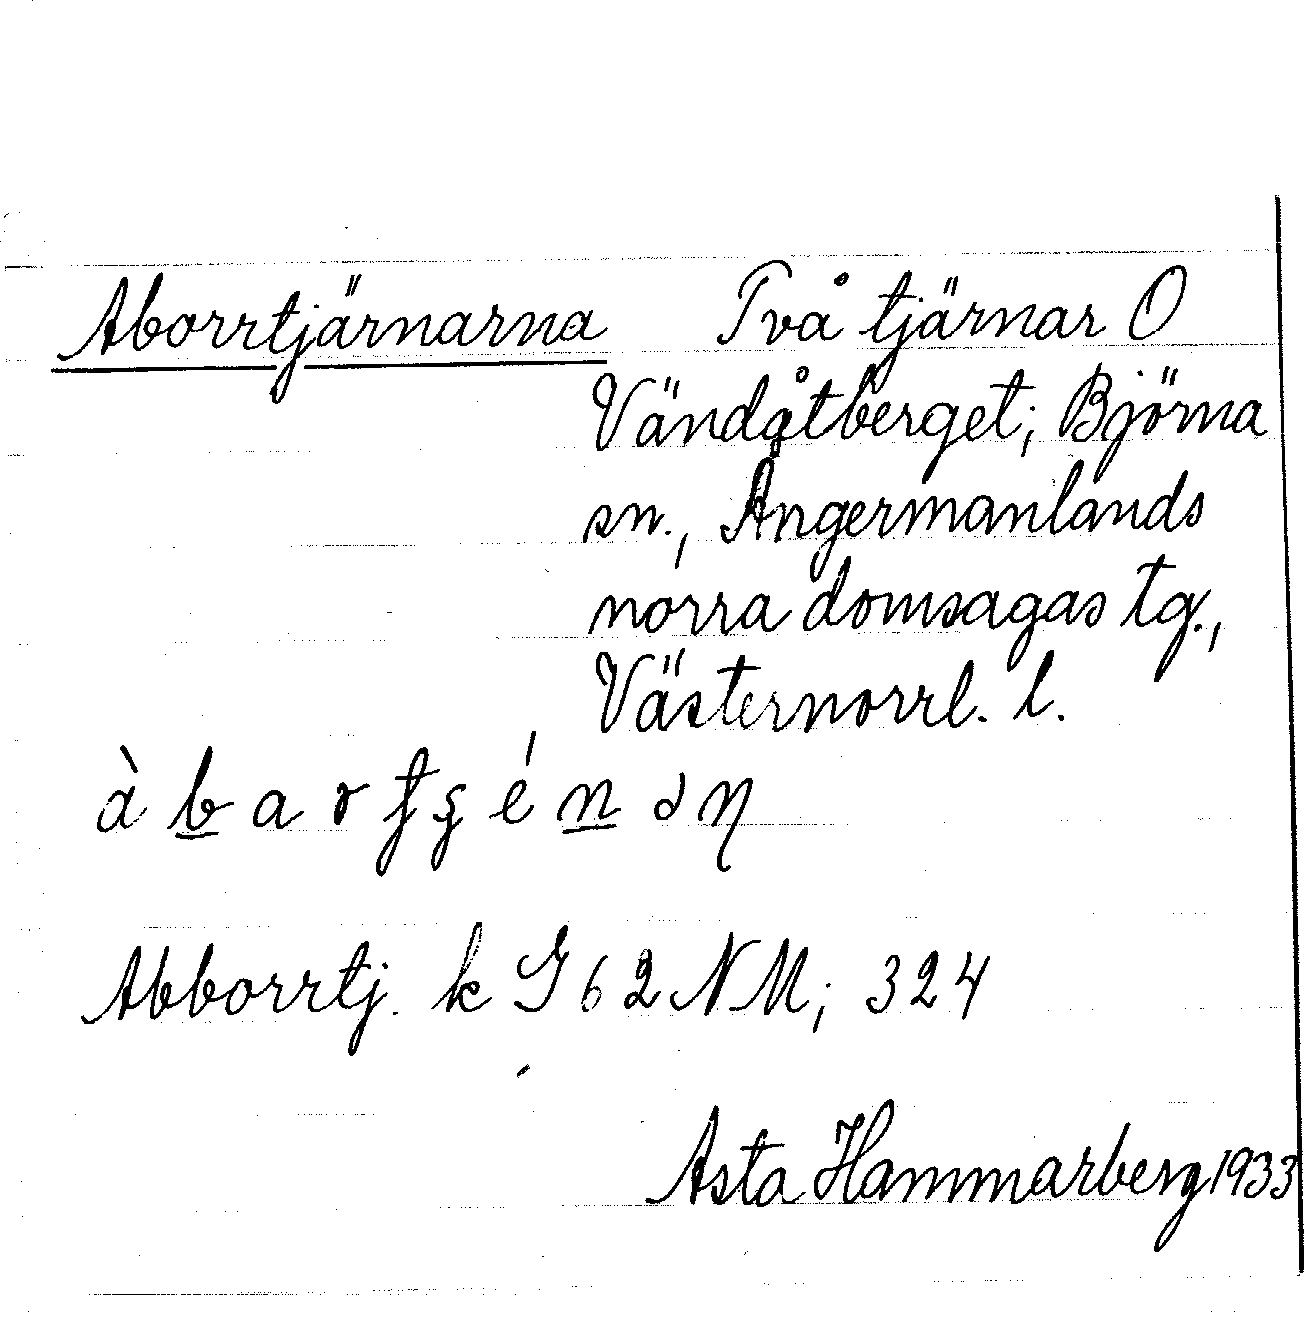 Aborrtjärnarna Två tjärnar O
Vändåtberget; Björna
sn., Ångermanlands
norra domsagas tg.,
Västernorrl. l.
Abborrtj. k G 62 NM; 324
Asta Hammarberg 1933